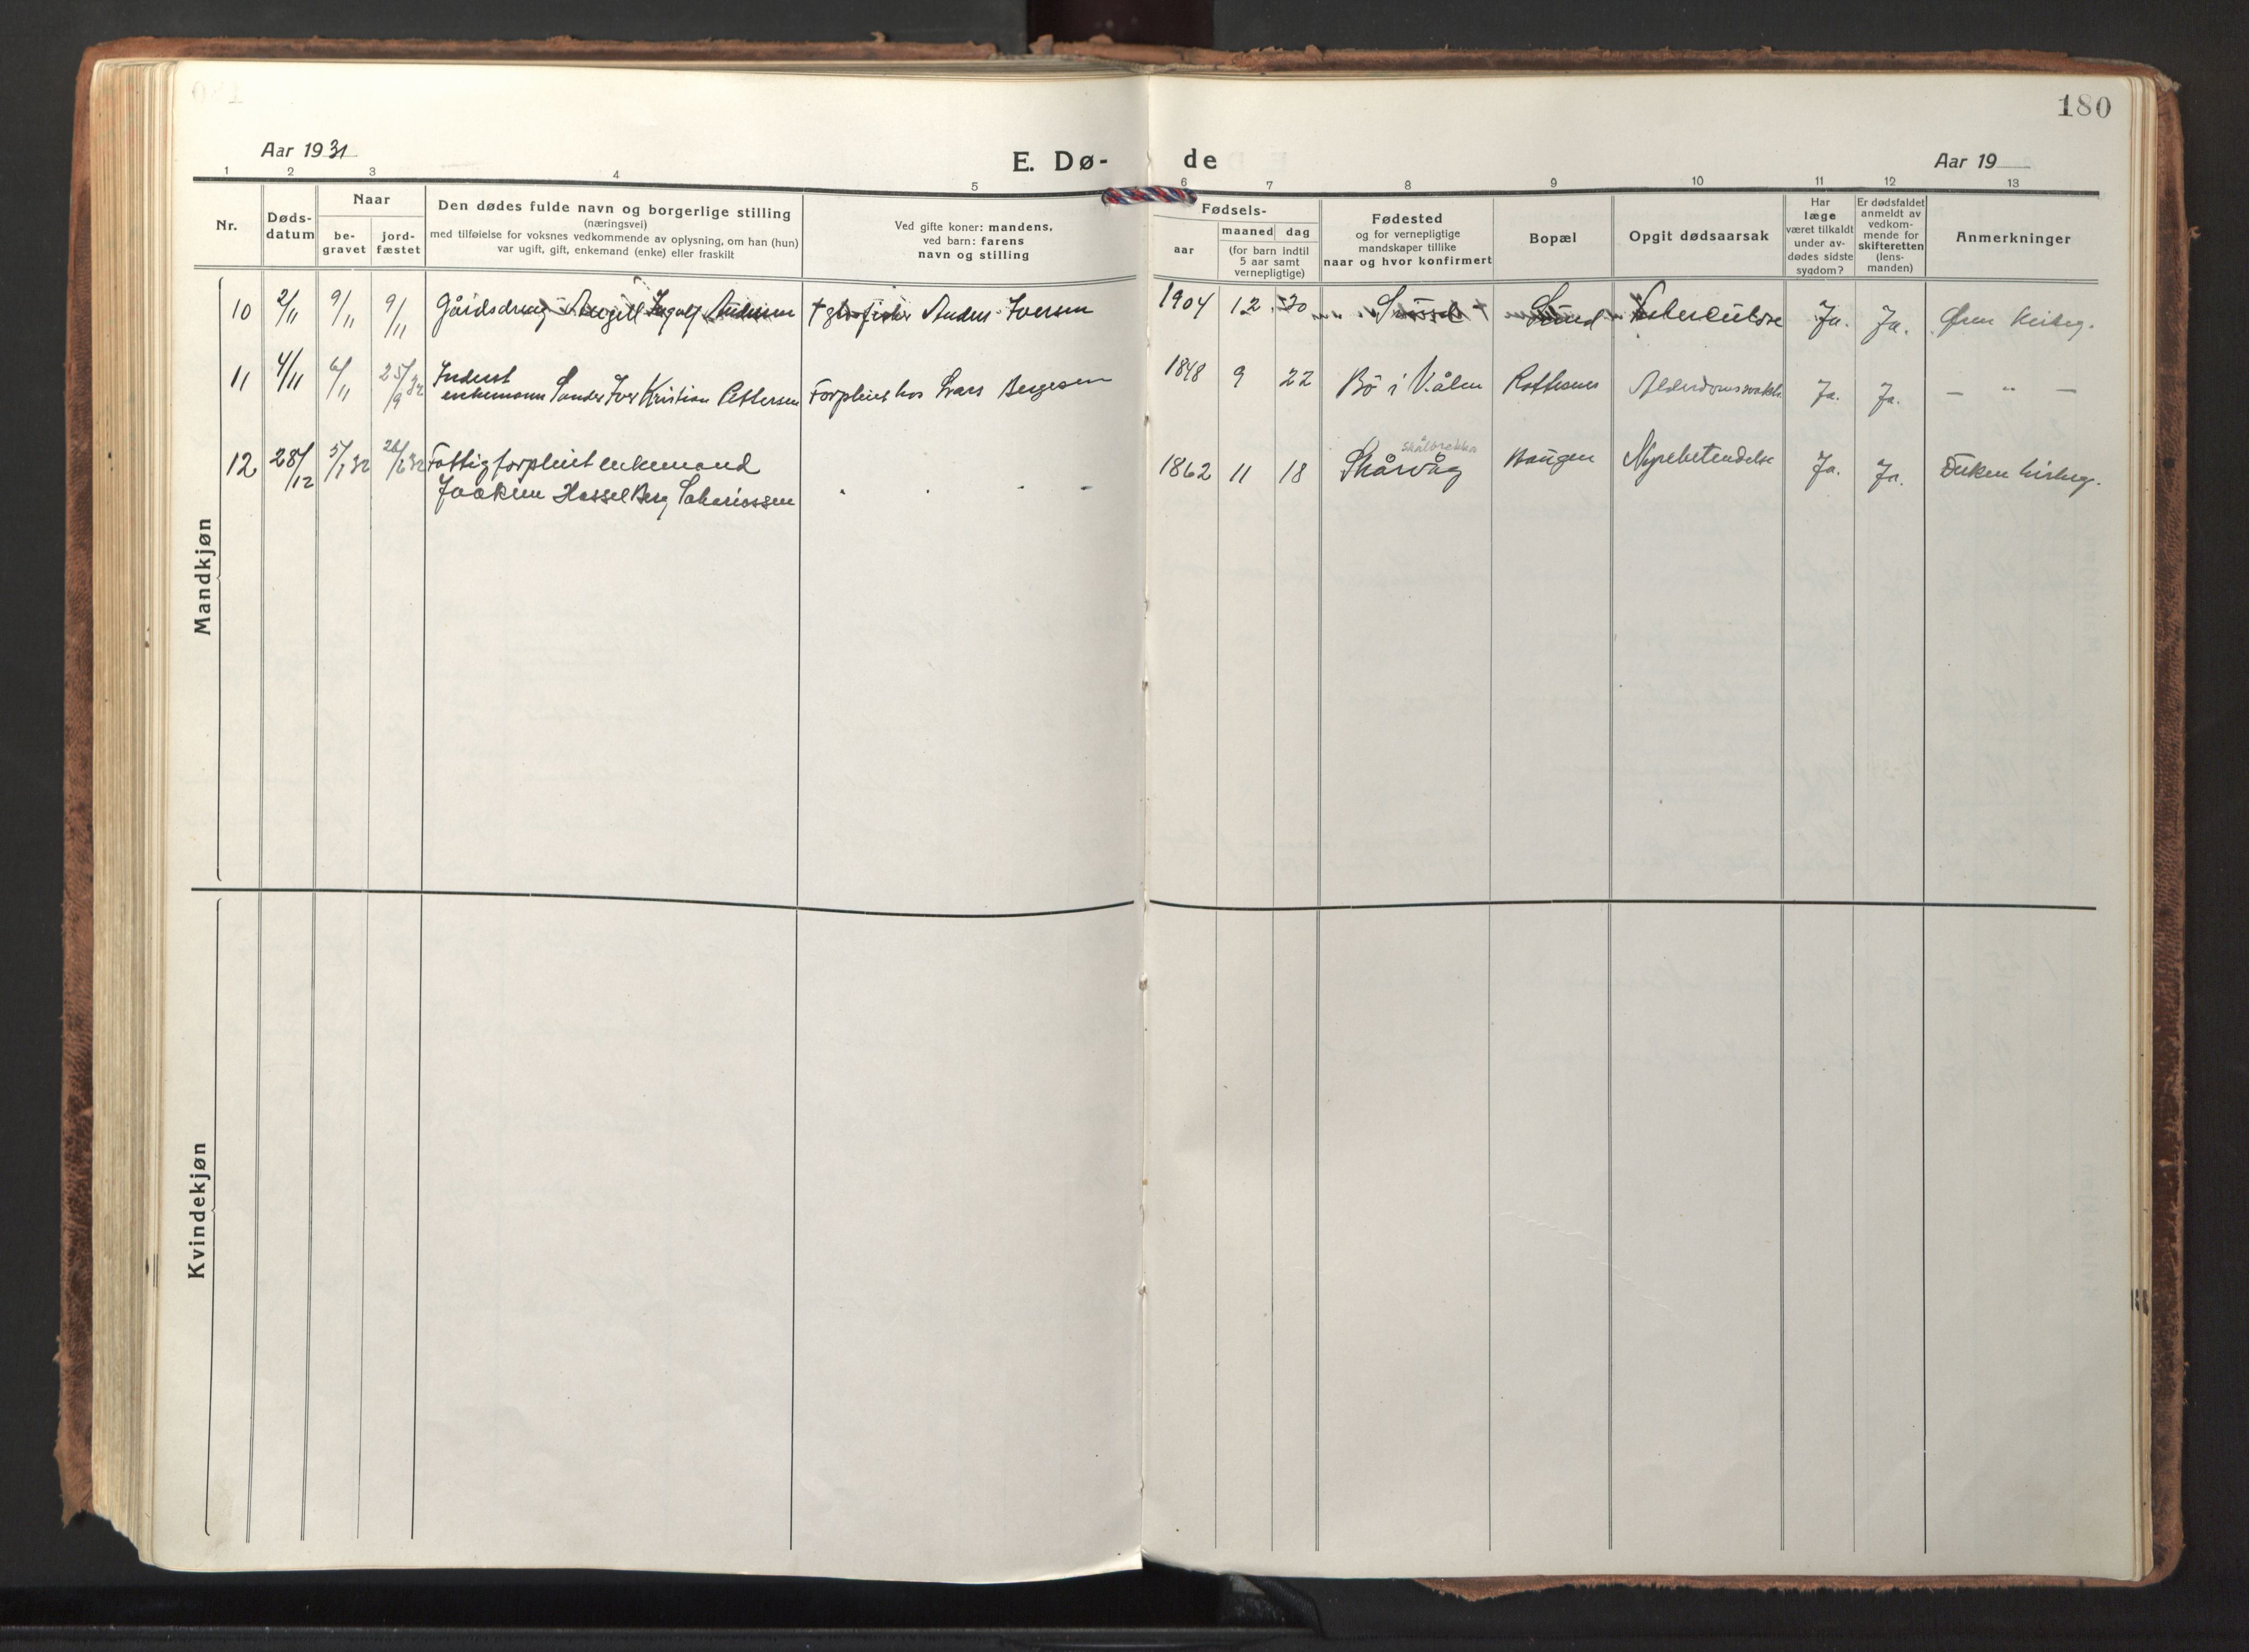 180
Aar 1931
E. Dø-
de
Aar 19
1 2 3 4 5 6 7 8 9 10 11 12 13
Nr.
Døds-
datum
Naar
be-
gravet
jord-
fæstet
Den dødes fulde navn og borgerlige stilling
(næringsvei)
med tilføielse for voksnes vedkommende av oplysning, om han (hun)
var ugift, gift, enkemand (enke) eller fraskilt
Ved gifte koner: mandens,
ved barn: farens
navn og stilling
Fødsels-
aar
maaned dag
(for barn indtil
5 aar samt
vernepligtige)
Fødested
og for vernepligtige
mandskaper tillike
naar og hvor konfirmert
Bopæl
Opgit dødsaarsak
Har
læge
været tilkaldt
under av-
dødes sidste
sygdom?
Er dødsfaldet
anmeldt av
vedkom-
mende for
skifteretten
(lens-
manden)
Anmerkninger
Mandkjøn
10 2/11 9/11 9/11 Gårdsdreng Ingolf Andersen Anders Iversen 1904 12 20 Sund Tuberculose Ja. Ja.
11 4/11 6/11 25/9 32 Inderst
enkemann Sander Iver Kristian Pettersen Forpleiet hos Lars Bergesen 1848 9 22 Bö i V.ålen Alderdomssvakh. Ja. Ja. — " —
12 28/12 5/1 32 26/6 32 Fattigforpleiet enkemand
Joakim Hassel Berg Sakariassen - 1862 11 18 Skårvåg Skålbrekka Haugen Nyrebetendelse Ja. Ja.
Kvindekjøn